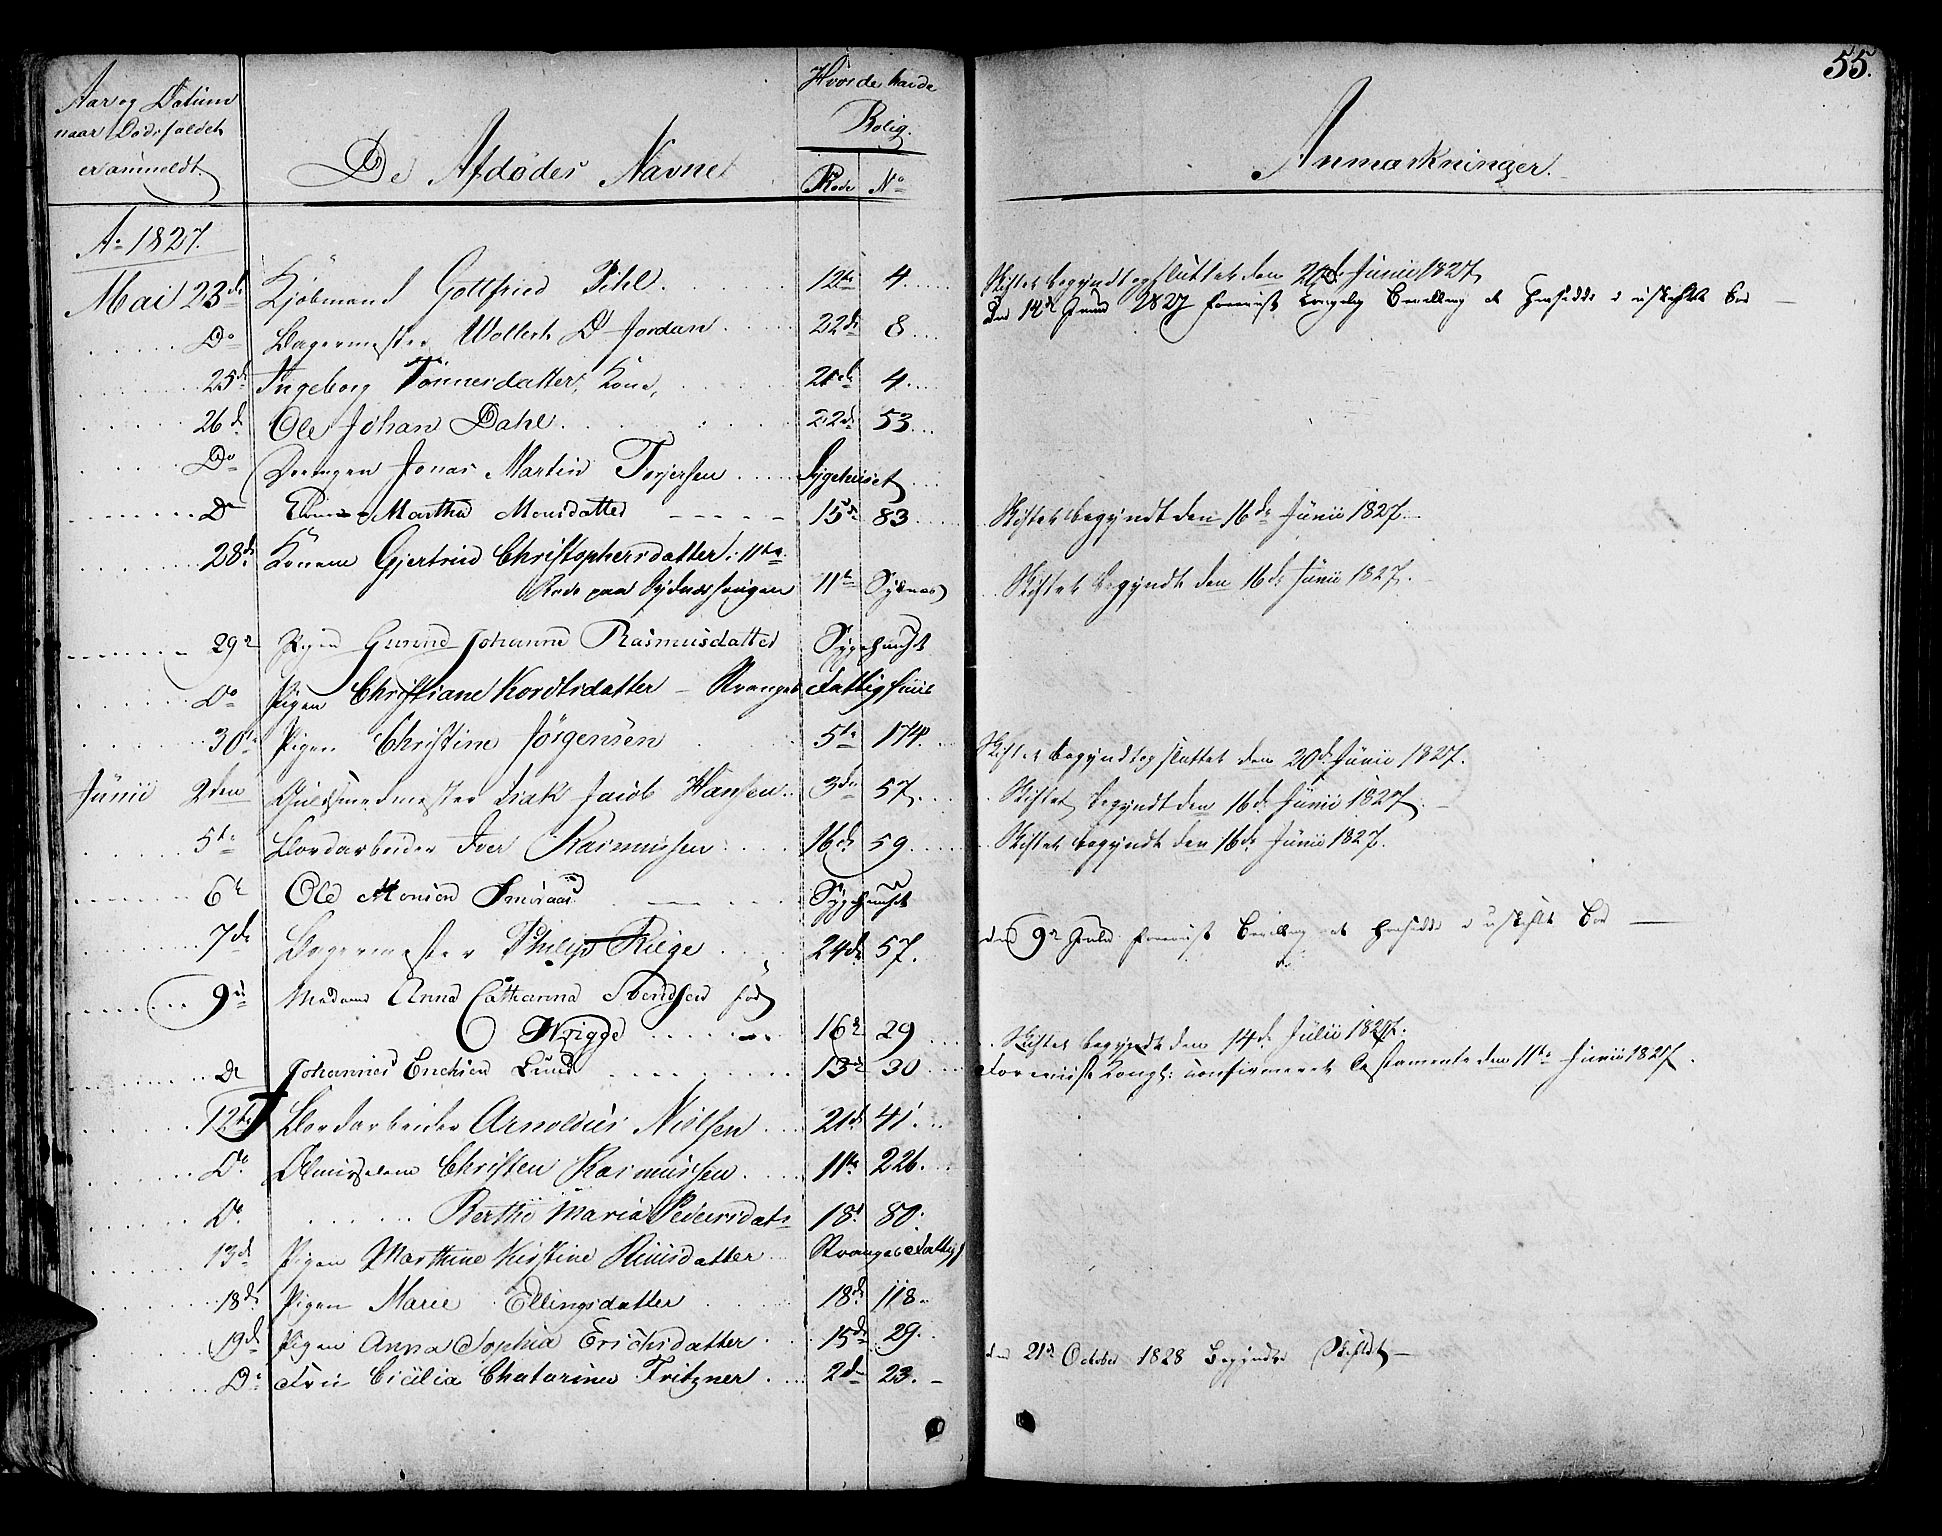 55.
Aar og Datum
naar Dødsfaldet
er anmeldt
De Afdødes Navne
Hvor de havde
Bolig.
Rode No
Anmærkninger.
Ao 1827.
Mai 23de Kjøbmand Gottfried Pihl. 12te 4. Skiftet begyndt og sluttet den Junii 1827
Den 12de Junii 1827 foreviist Kongelig Bevilling at hensidde i uskiftet Boe
Do Bagermester Wollert D Jordan 22de 8
25de Ingeborg Tønnesdatter, Kone, 4.
26de Ole Johan Dahl 22de 53
Do Drengen Jonas Martin Torjersen Sygehuset
Do Martha Monsdatter 15de 83 Skiftet begyndt den 16de Junii 1827.
28de Konen Gjertrud Christophersdatter i 11te
Rode paa Sydnæshougen 11te Sydnæs Skiftet begyndt den 16de Junii 1827.
29de Pigen Johanne Rasmusdatter Sygehuuset
Do Pigen Christiane Kordtsdatter - Stranges Fattighuus
30te Pigen Christine Jørgensen 5te 174. Skiftet begyndt og sluttet den 20de Junii 1827.
Junii 2den Guldsmedmester Isak Jacob Hansen 3de 57. Skiftet begyndt den 16de Junii 1827.
5te Bordarbeider Iver Rasmussen 16de 59 Skiftet begyndt den 16de Junii 1827.
6te Ole Monsen Smøraas Sygehuuset
7de Bagermester Philip Riege 24de 57. den 9de foreviist Bevilling at hensidde i uskiftet Boe
9de Madame Anna Catharina Svendsen fød
Wrigge 16de 29 Skiftet begyndt den 14de Julii 1827.
Do Johannes Erichsen Lund 13de 30 Foreviist Kongl: confirmeret Testamente den 11te Junii 1827.
12te Bordarbeider Arnoldus Nielsen 21de 41.
Do Almisselem Christen Rasmussen 11te 226.
Do Berthe Maria Pedersdatr 18de 80.
13de Pigen Marthine Kistine Riiisdatter Stranges Fattigh
18de Pigen Marie Ellingsdatter 18de 118.
19de Pigen Anna Sophia Erichsdatter 15de 29.
Do Frue Cicilia Chatarina Fritzner 2de 23. den 21de October 1828 begyndte Skiftet